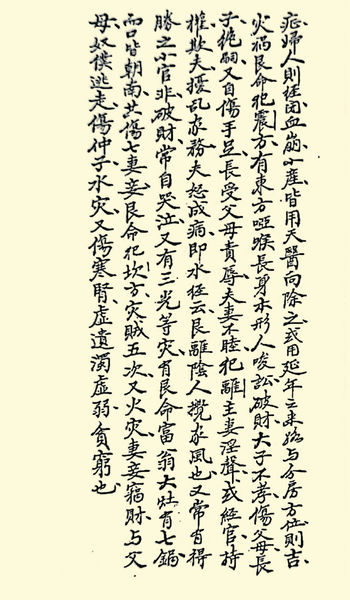 症婦人則經閉血崩小產皆用天醫向除之或用延年之來路與分房方位則吉
火禍艮命犯震方有東方啞喉長身木形人唆訟破財大子不孝傷父母長
子絶嗣又自傷手足長受父母責辱夫妻不睦犯離主妻淫聲或經官持
權欺夫擾乱家務夫怒成病即水經云艮離陰人攪家風也又常有得
勝之小官非破財常自哭泣又有三光等灾有艮命富翁大灶有七鍋
而口皆朝南共傷七妻妾艮命犯坎方灾賊五次又火灾妻妾竊財與父
母奴僕逃走傷仲子水灾又傷寒腎虛遺濁虛弱貧窮也